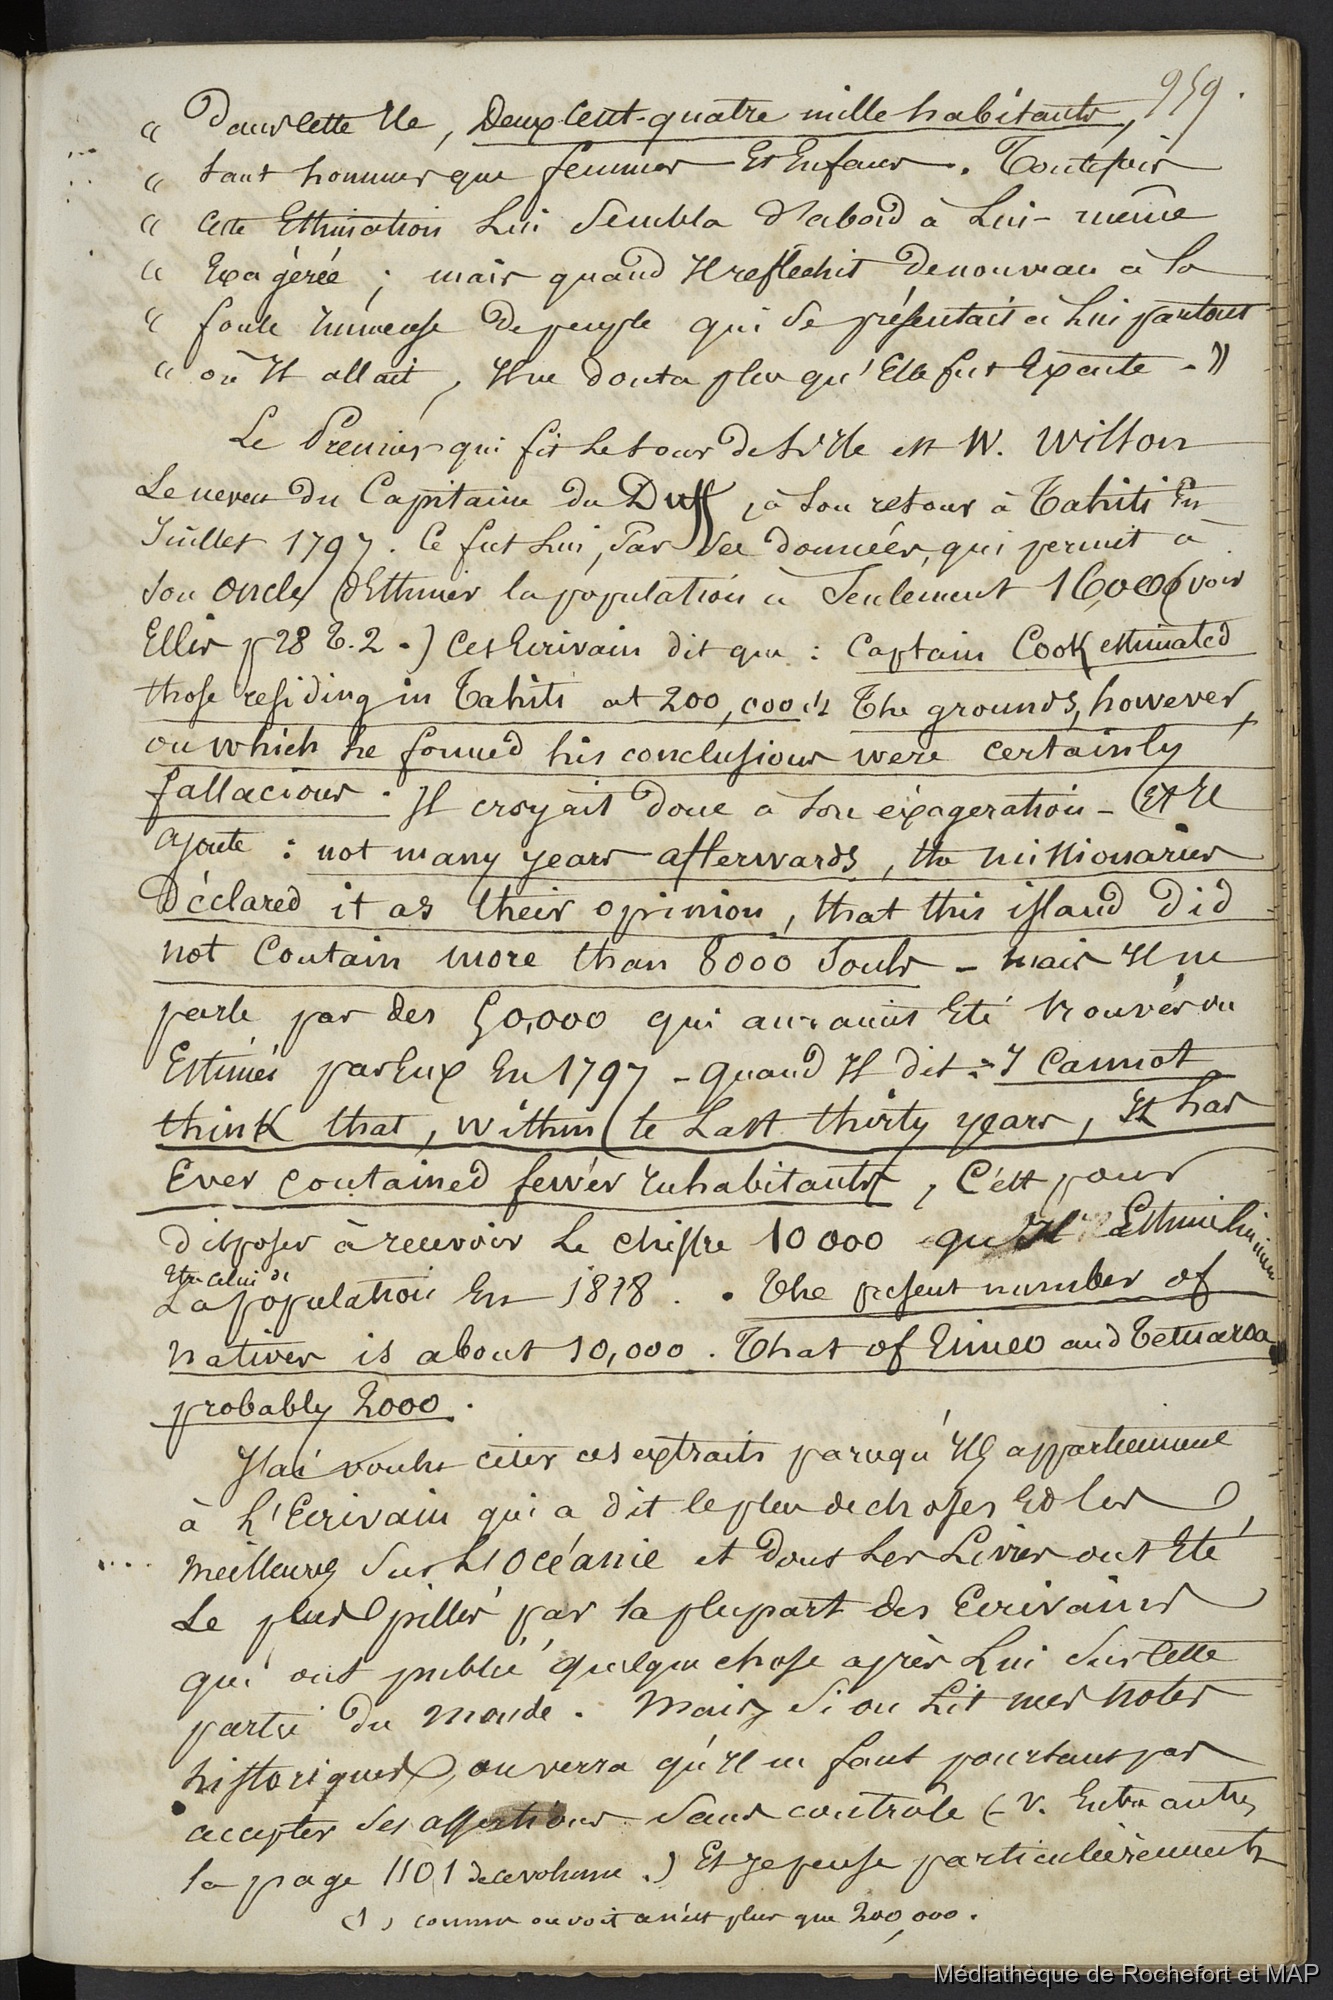 959.
" dans cette Ile, Deux Cent-quatre mille habitants,
" tant hommes que femmes et Enfans. Toutefois
" cette Estimation Lui Sembla d'abord à Lui-même
" Exagérée ; mais quand Il reflechit de nouveau à la
" foule Immense de peuple qui Se présentait à Lui partout
" où Il allait, Il ne douta plus qu'Elle fut Exacte - "
Le Premier qui fit Le tour de L'Ile est W. Wilson
Le neveu du Capitaine du Duff, à Son retour à Tahiti En
Juillet 1797. Ce fut Lui, par Ses données, qui permit à
Son Oncle d'Estimer la population à Seulement 16,000 (voir
Ellis p 28 T. 2.) Cet Ecrivain dit que : Captain Cook estimated
those residing in Tahiti at 200,000 (1) The grounds, however,
on which he formed his conclusions were certainly
fallacious. Il croyait donc à Son éxageration - Et Il
ajoute : not many years afterwards, the missionaries
Déclared it as their opinion, that this island did
not Contain more than 8000 Souls - mais Il ne
parle pas des 50,000 qui auraient Eté trouvés ou
Estimés par Eux En 1797 - quand Il dit : I Cannot
think that, within te Last thirty years, It has
Ever contained fewer Inhabitants, C'est pour
disposer à recevoir Le chiffre 10000 qu'Il Estime Lui même
Etre celui de
La population En 1828. . The present number of
natives is about 10,000. That of Eimeo and Tetuaroa
probably 2000.
J'ai voulu citer ces extraits parcequ'Ils appartiennent
à L'Ecrivain qui a dit le plus de choses Et les
Meilleures Sur L'Océanie et dont Les Livres ont Eté
Le plus pillés par la plupart des Ecrivains
qui ont publié quelque chose après Lui Sur Cette
partie du monde. Mais, Si on Lit mes notes
historiques, on verra qu'Il ne faut pourtant pas
accepter Ses assertions Sans contrôle (- V. Entre autres
la page 1101 de ce volume.) Et Je pense particulièrement
(1) comme on voit ce n'est plus que 200,000.
Médiathèque de Rochefort et MAP